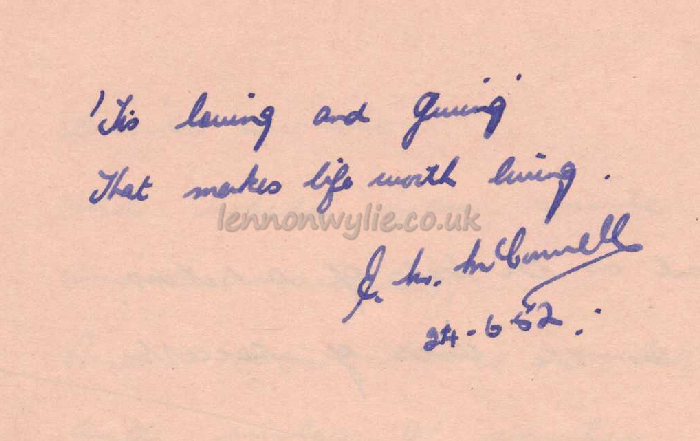 'Tis loving and Giving
That makes life worth living.
lennonwylie.co.uk
McConnell
24-6-52.